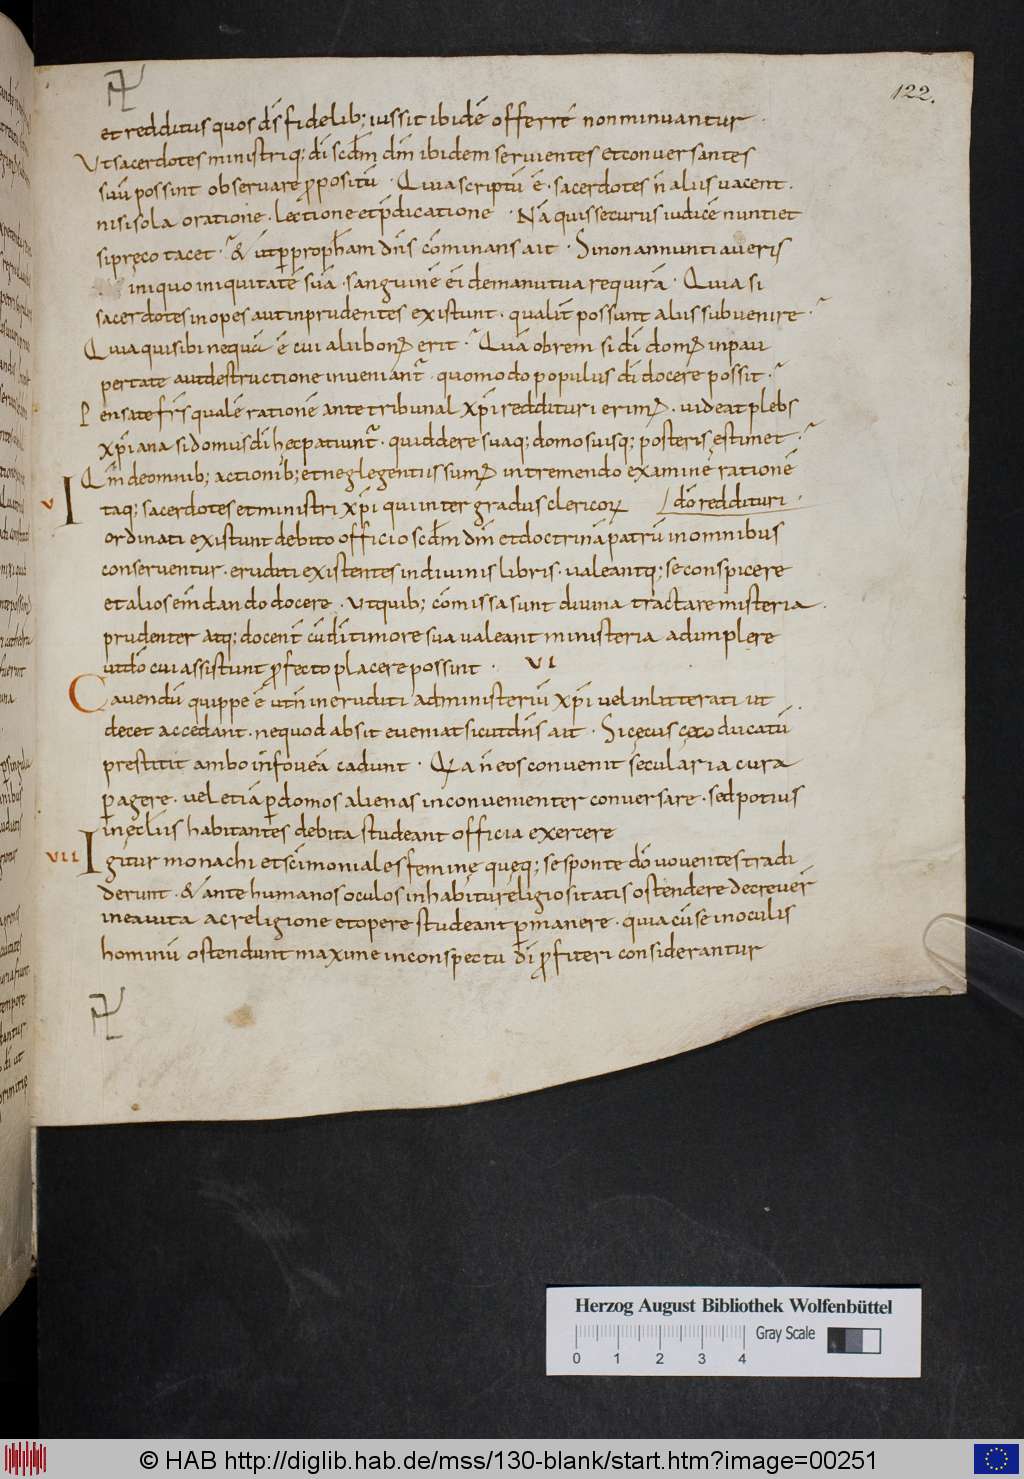 122.
et redditus quos dś fidelib; iussit ibidē offerrē non minuantur.
Ut sacerdotes ministriq; dī scdm̄ dm̄ ibidem seruientes et conuersantes
suū possint obseruare ꝓpositū. Quia scriptū ē. sacerdotes n̄ aliis uacent.
nisi sola oratione. lectione et p̄dicatione. Nā quis securus iudicē nuntiet
si pręco tacet. & ut ꝑ prophām dn̄s cōminans ait. Si non annuntiaueris
iniquo iniquitatē suā. sanguinē eī de manu tua requirā. Quia si
sacerdotes inopes aut inprudentes existunt. qualit̄ possunt aliis subuenire.
Quia qui sibi nequā ē cui alii bonꝰ erit. Quā obrem si dī domꝰ in pau
pertate aut destructione inueniant̄. quomodo populus dī docere possit.
Pensate fr̄s qualē rationē ante tribunal xp̄i reddituri erimꝰ. uideat plebs
xp̄iana si domus dī hęc patiunt̄. quid dere suaq; domo suisq; posteris estimet.
Qm̄ de omnib; actionib; et neglegentiis sumꝰ in tremendo examinę rationē
dō reddituri.
V Itaq; sacerdotes et ministri xp̄i qui inter gradus clericoꝝ
ordinati existunt debito officio scdm̄ dm̄ et doctrinā patrū in omnibus
conseruentur. eruditi existentes in diuinis libris. ualeantq; se conspicere
et alios emdando docere. Ut quib; cōmissa sunt diuina tractare misteria.
prudenter atq; docent̄ cū dī timore sua ualeant ministeria adimplęre
ut dō cui assistunt ꝓfecto placere possint. VI
Cauendū quippe ē ut n̄ ineruditi ad ministeriū xp̄i uel inlitterati ut
decet accedant. ne quod absit eueniat sicut dn̄s ait. Si cęcus cęco ducatū
prestitit ambo in foueā cadunt. Qꝛ a n̄ eos conuenit sęcularia cura
ꝑagere. uel etiā ꝑ domos alienas inconuenienter conuersare. sed potius
in ęcl̄iis habitantes debita studeant officia exercere
VII Igitur monachi et scīmoniales feminę quęq; se sponte dō uouentes tradi
derunt. & ante humanos oculos in habitu religiositatis ostendere decreuer̄
in ea uita ac religione et opere studeant ꝑmanere. quia cū se in oculis
hominū ostendunt maxime in conspectu dī ꝓfiteri considerantur
Herzog August Bibliothek Wolfenbüttel
Gray Scale
0 1 2 3 4
© HAB http://diglib.hab.de/mss/130-blank/start.htm?image=00251